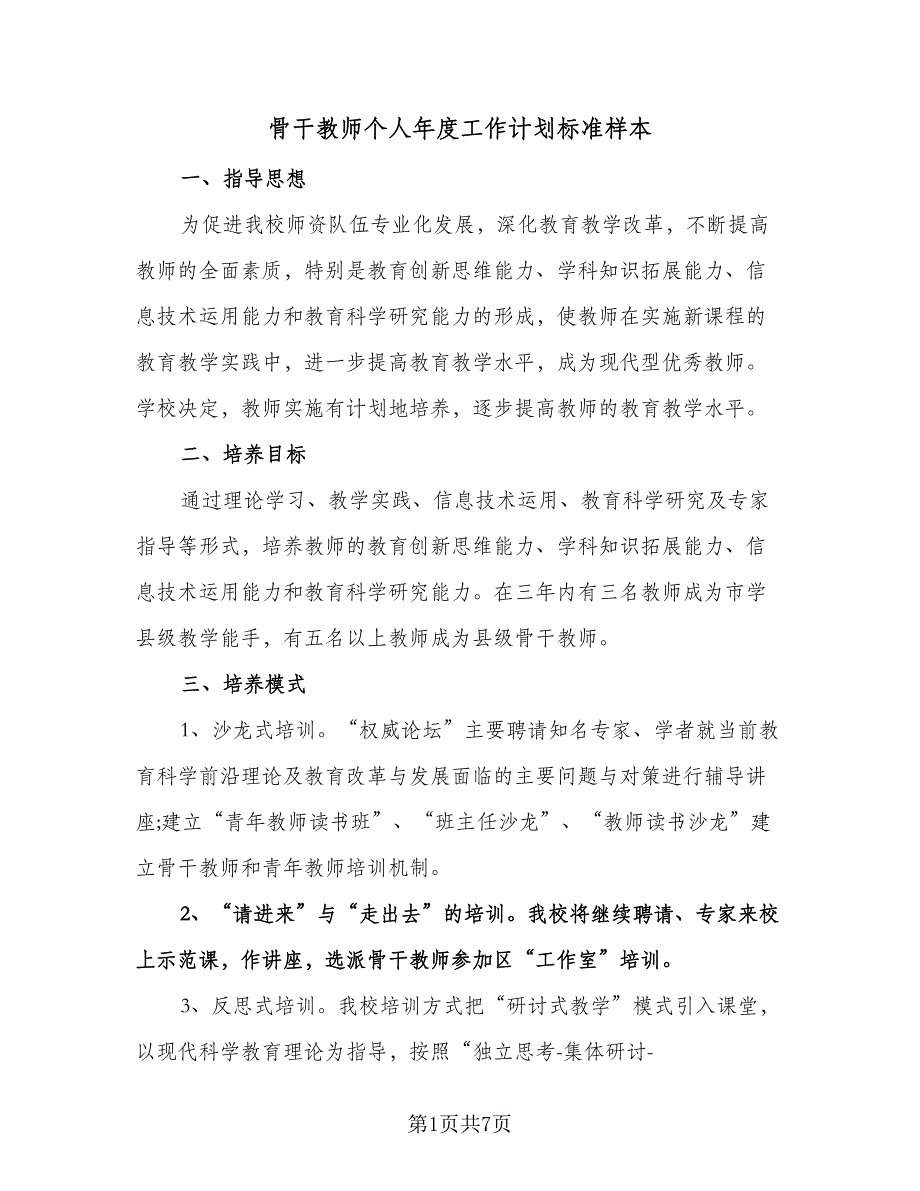 骨干教师个人年度工作计划标准样本
一、指导思想
为促进我校师资队伍专业化发展，深化教育教学改革，不断提高
教师的全面素质，特别是教育创新思维能力、学科知识拓展能力、信
息技术运用能力和教育科学研究能力的形成，使教师在实施新课程的
教育教学实践中，进一步提高教育教学水平，成为现代型优秀教师。
学校决定，教师实施有计划地培养，逐步提高教师的教育教学水平。
二、培养目标
通过理论学习、教学实践、信息技术运用、教育科学研究及专家
指导等形式，培养教师的教育创新思维能力、学科知识拓展能力、信
息技术运用能力和教育科学研究能力。在三年内有三名教师成为市学
县级教学能手，有五名以上教师成为县级骨干教师。
三、培养模式
1、沙龙式培训。“权威论坛”主要聘请知名专家、学者就当前教
育科学前沿理论及教育改革与发展面临的主要问题与对策进行辅导讲
座;建立“青年教师读书班”、“班主任沙龙”、“教师读书沙龙”建
立骨干教师和青年教师培训机制。
2、“请进来”与“走出去”的培训。我校将继续聘请、专家来校
上示范课，作讲座，选派骨干教师参加区“工作室”培训。
3、反思式培训。我校培训方式把“研讨式教学”模式引入课堂，
以现代科学教育理论为指导，按照“独立思考-集体研讨-
第1页共7页